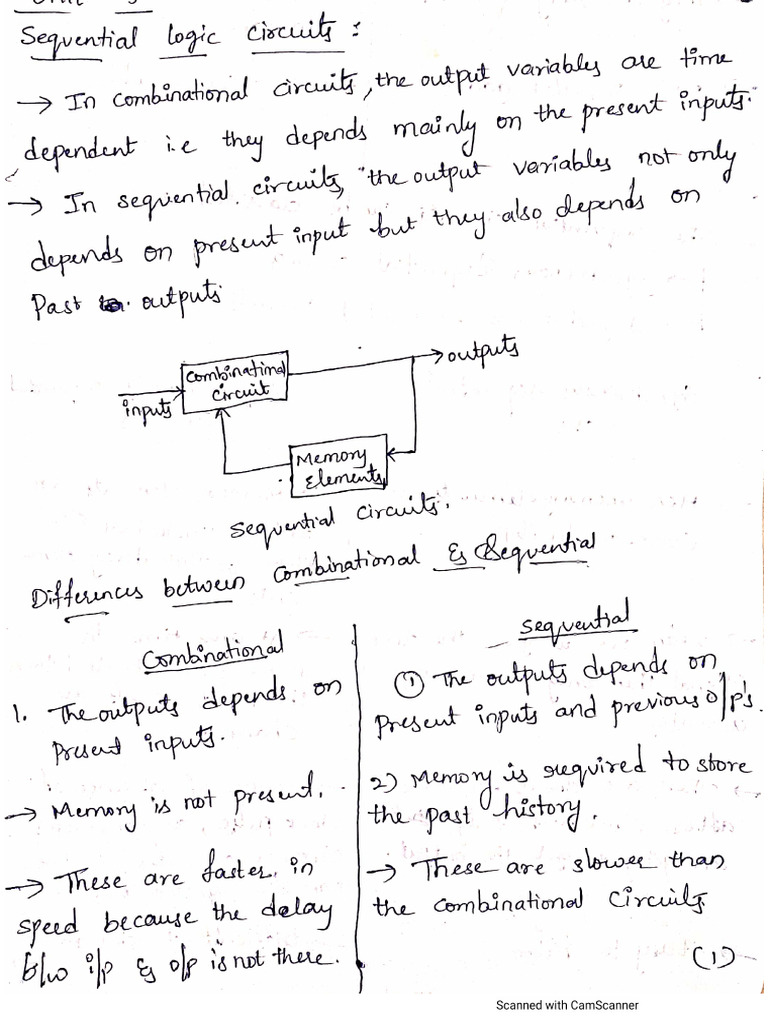 Sequential logic circuits :
→ In combinational circuits, the output variables are time
dependent i.e they depends mainly on the present inputs.
→ In sequential circuits, the output variables not only
depends on present input but they also depends on
Past outputs
inputs
Combinational
Circuit
→ outputs
Memory
Elements
Sequential Circuits.
Differences between Combinational & Sequential
Combinational
1. The outputs depends on
Present inputs.
→ Memory is not present.
→ These are faster in
speed because the delay
b/w i/p & o/p is not there.
Sequential
① The outputs depends on
Present inputs and previous o/p's.
2) Memory is required to store
the past history.
→ These are slower than
the combinational Circuits.
(1)
Scanned with CamScanner